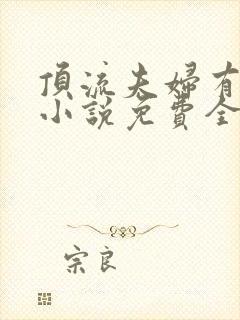 頂流夫婦有
小說免費全
宗良